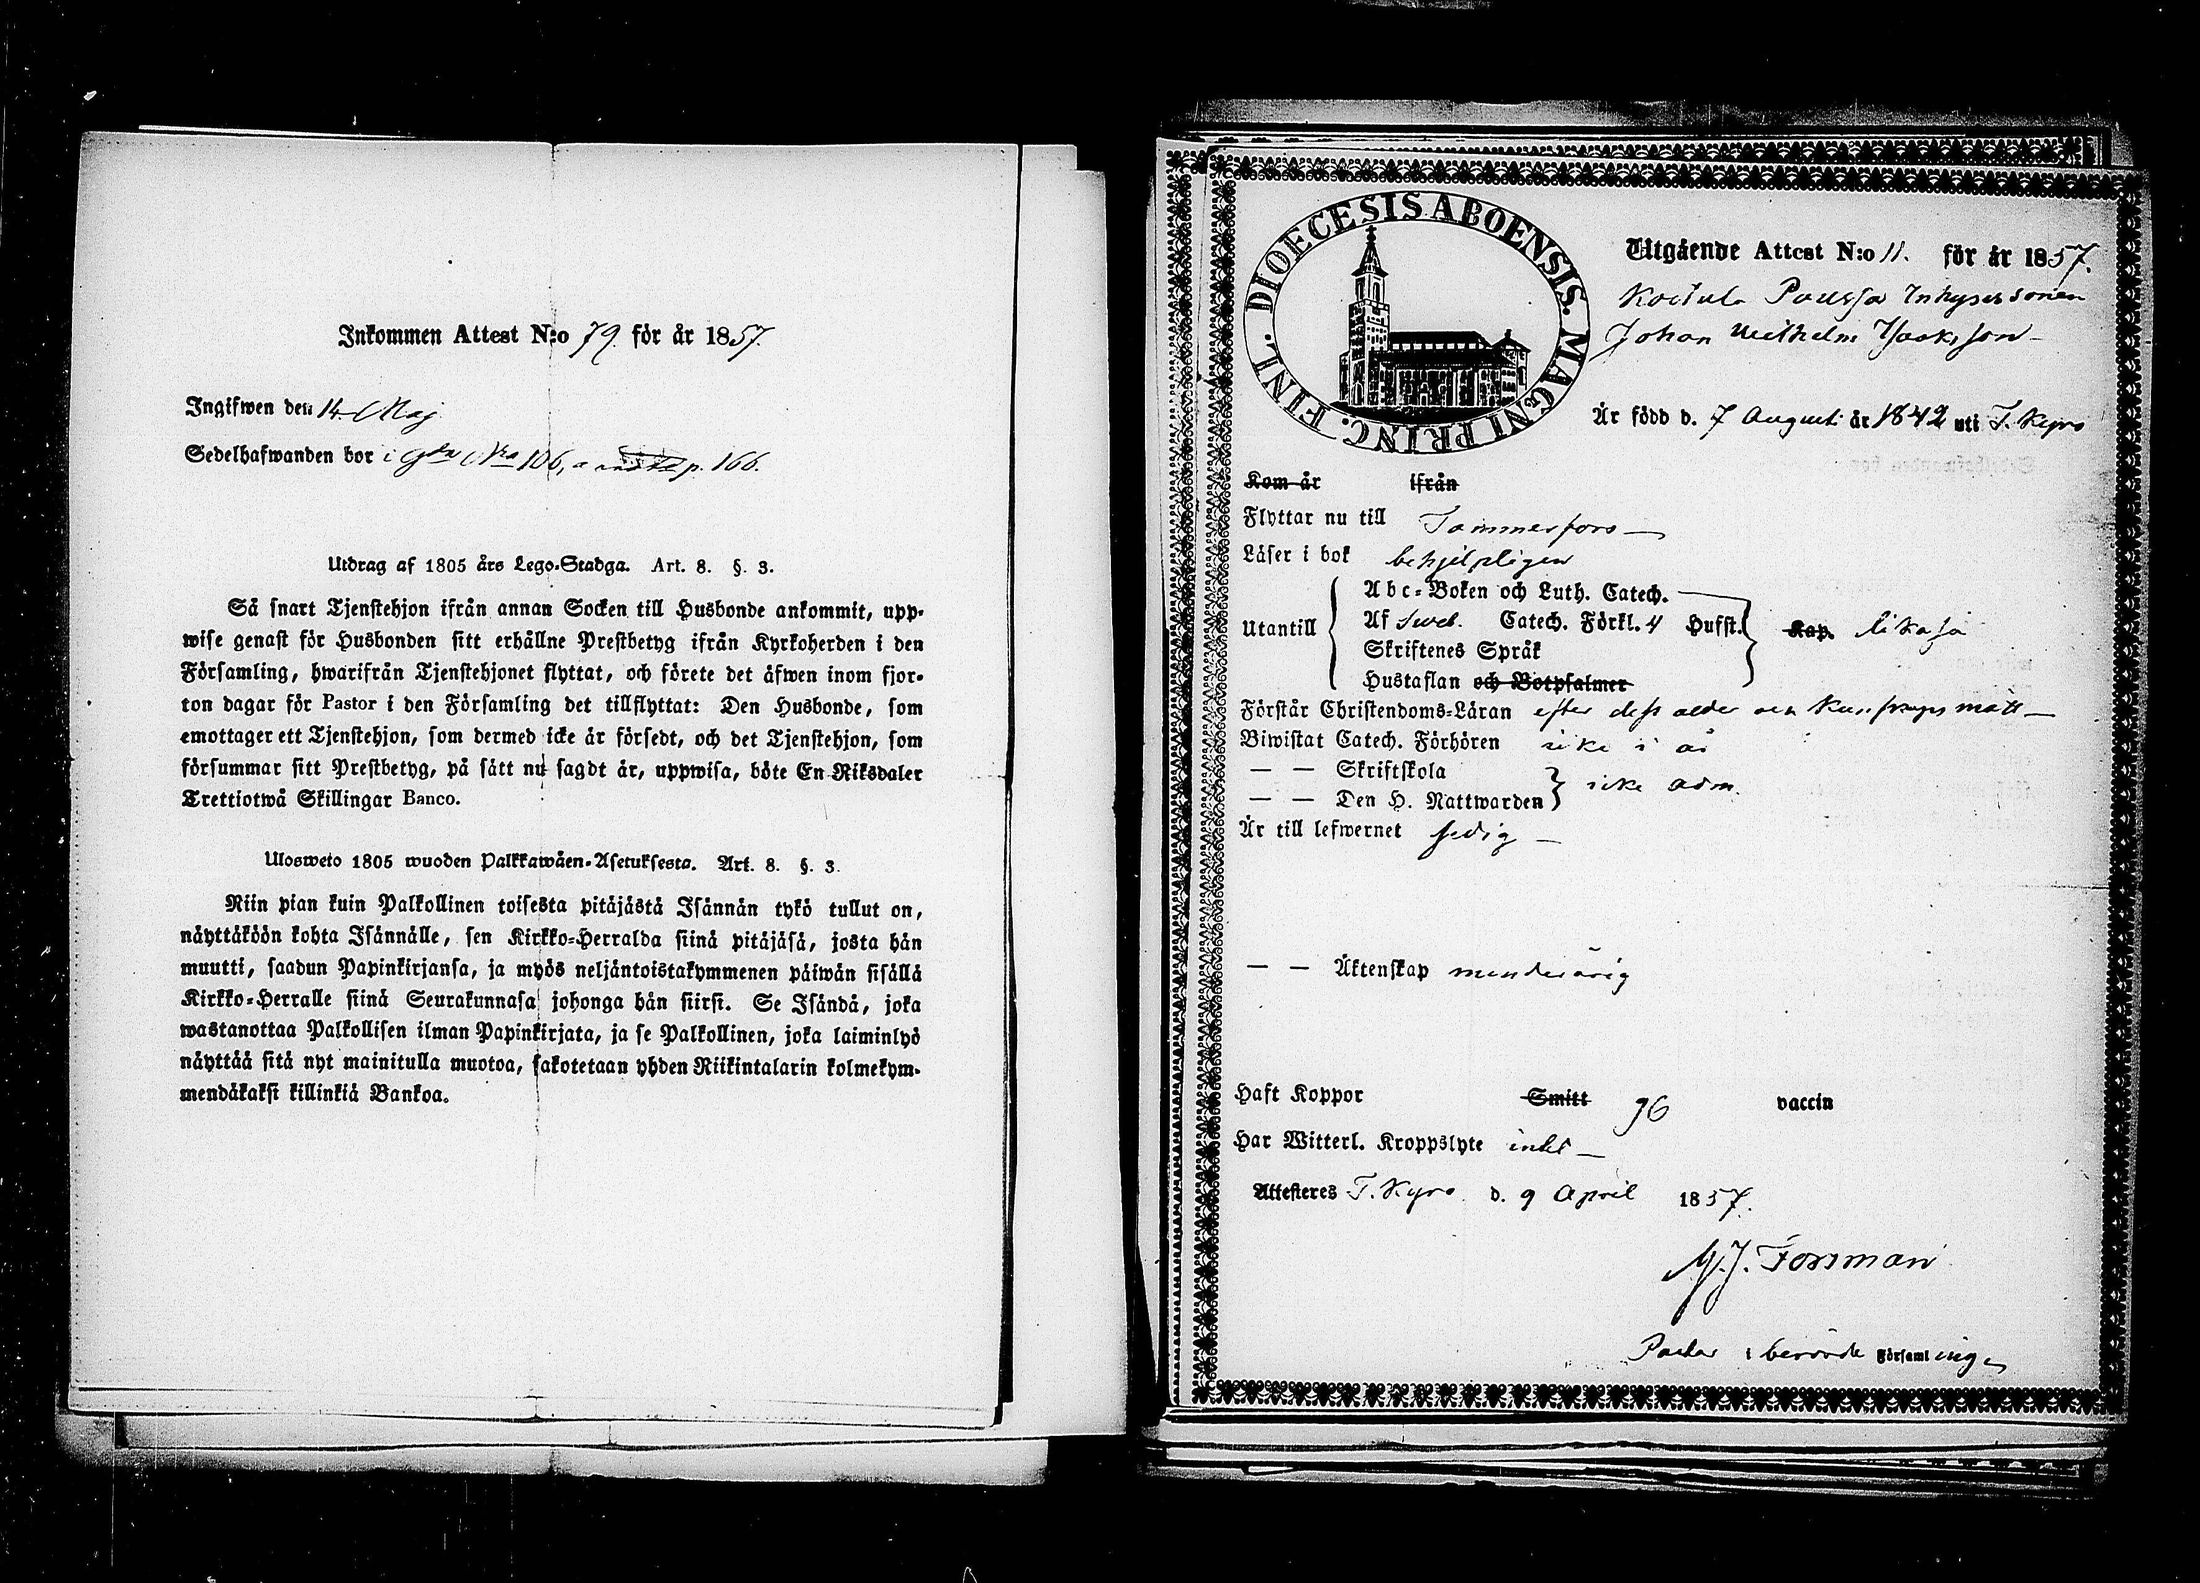 Inkommen Attest N:o 79. för år 1857.
Ingifwen den 14. Maj
Sedelhafwanden bor i Gdn No 106, p. 166.
Utdrag af 1805 års Lego-Stadga. Art. 8. §. 3.
Så snart Tjenstehjon ifrån annan Socken till Husbonde ankommit, upp-
wise genast för Husbonden sitt erhållne Prestbetyg ifrån Kyrkoherden i den
Församling, hwarifrån Tjenstehjonet flyttat, och förete det äfwen inom fjor-
ton dagar för Pastor i den Församling det tillflyttat: Den Husbonde, som
emottager ett Tjenstehjon, som dermed icke är försedt, och det Tjenstehjon, som
försummar sitt Prestbetyg, på sätt nu sagdt är, uppwisa, böte En Riksdaler
Trettiotwå Skillingar Banco.
Ulosweto 1805 wuoden Palkkawäen-Asetuksesta. Art. 8. §. 3.
Niin pian kuin Palkollinen toisesta pitäjästä Isännän tykö tullut on,
näyttäköön kohta Isännälle, sen Kirkko-Herralda siinä pitäjäsä, josta hän
muutti, saadun Papinkirjansa, ja myös neljäntoistakymmenen päiwän sisällä
Kirkko-Herralle siinä Seurakunnasa johonga hän siirsi. Se Isändä, joka
wastanottaa Palkollisen ilman Papinkirjata, ja se Palkollinen, joka laiminlyö
näyttää sitä nyt mainitulla muotoa, sakotetaan yhden Riikintalarin kolmekym-
mendäkaksi killinkiä Bankoa.
DIOECESIS ABOENSIS. MAGNI PRINC. FINL.
Utgående Attest N:o 11. för år 1857.
Paussa Inhyses sonen
Johan Wilhelm Isaksson
Är född d. 7 Augusti år 1842 uti T. Kyro
Kom år ifrån
Flyttar nu till Tammerfors
Läser i bok behjelpligen
Abc-Boken och Luth. Catech.
Utantill Af Sweb. Catech. Förkl. 4 Hufst. Kap. likaså
Skriftenes Språk
Hustaflan och Botpsalmer
Förstår Christendoms-Läran efter dess ålder och kunskaps mått
Biwistat Catech. Förhören icke i år
— — Skriftskola
— — Den H. Nattwarden icke adm.
Är till lefwernet sedig
— — Äktenskap minderårig
Haft Koppor Smitt vaccin
Har Witterl. Kroppslyte intet
Attesteras T. Kyro d. 9 April 1857.
M. J. Forsman
Pastor i berörde Församlingen